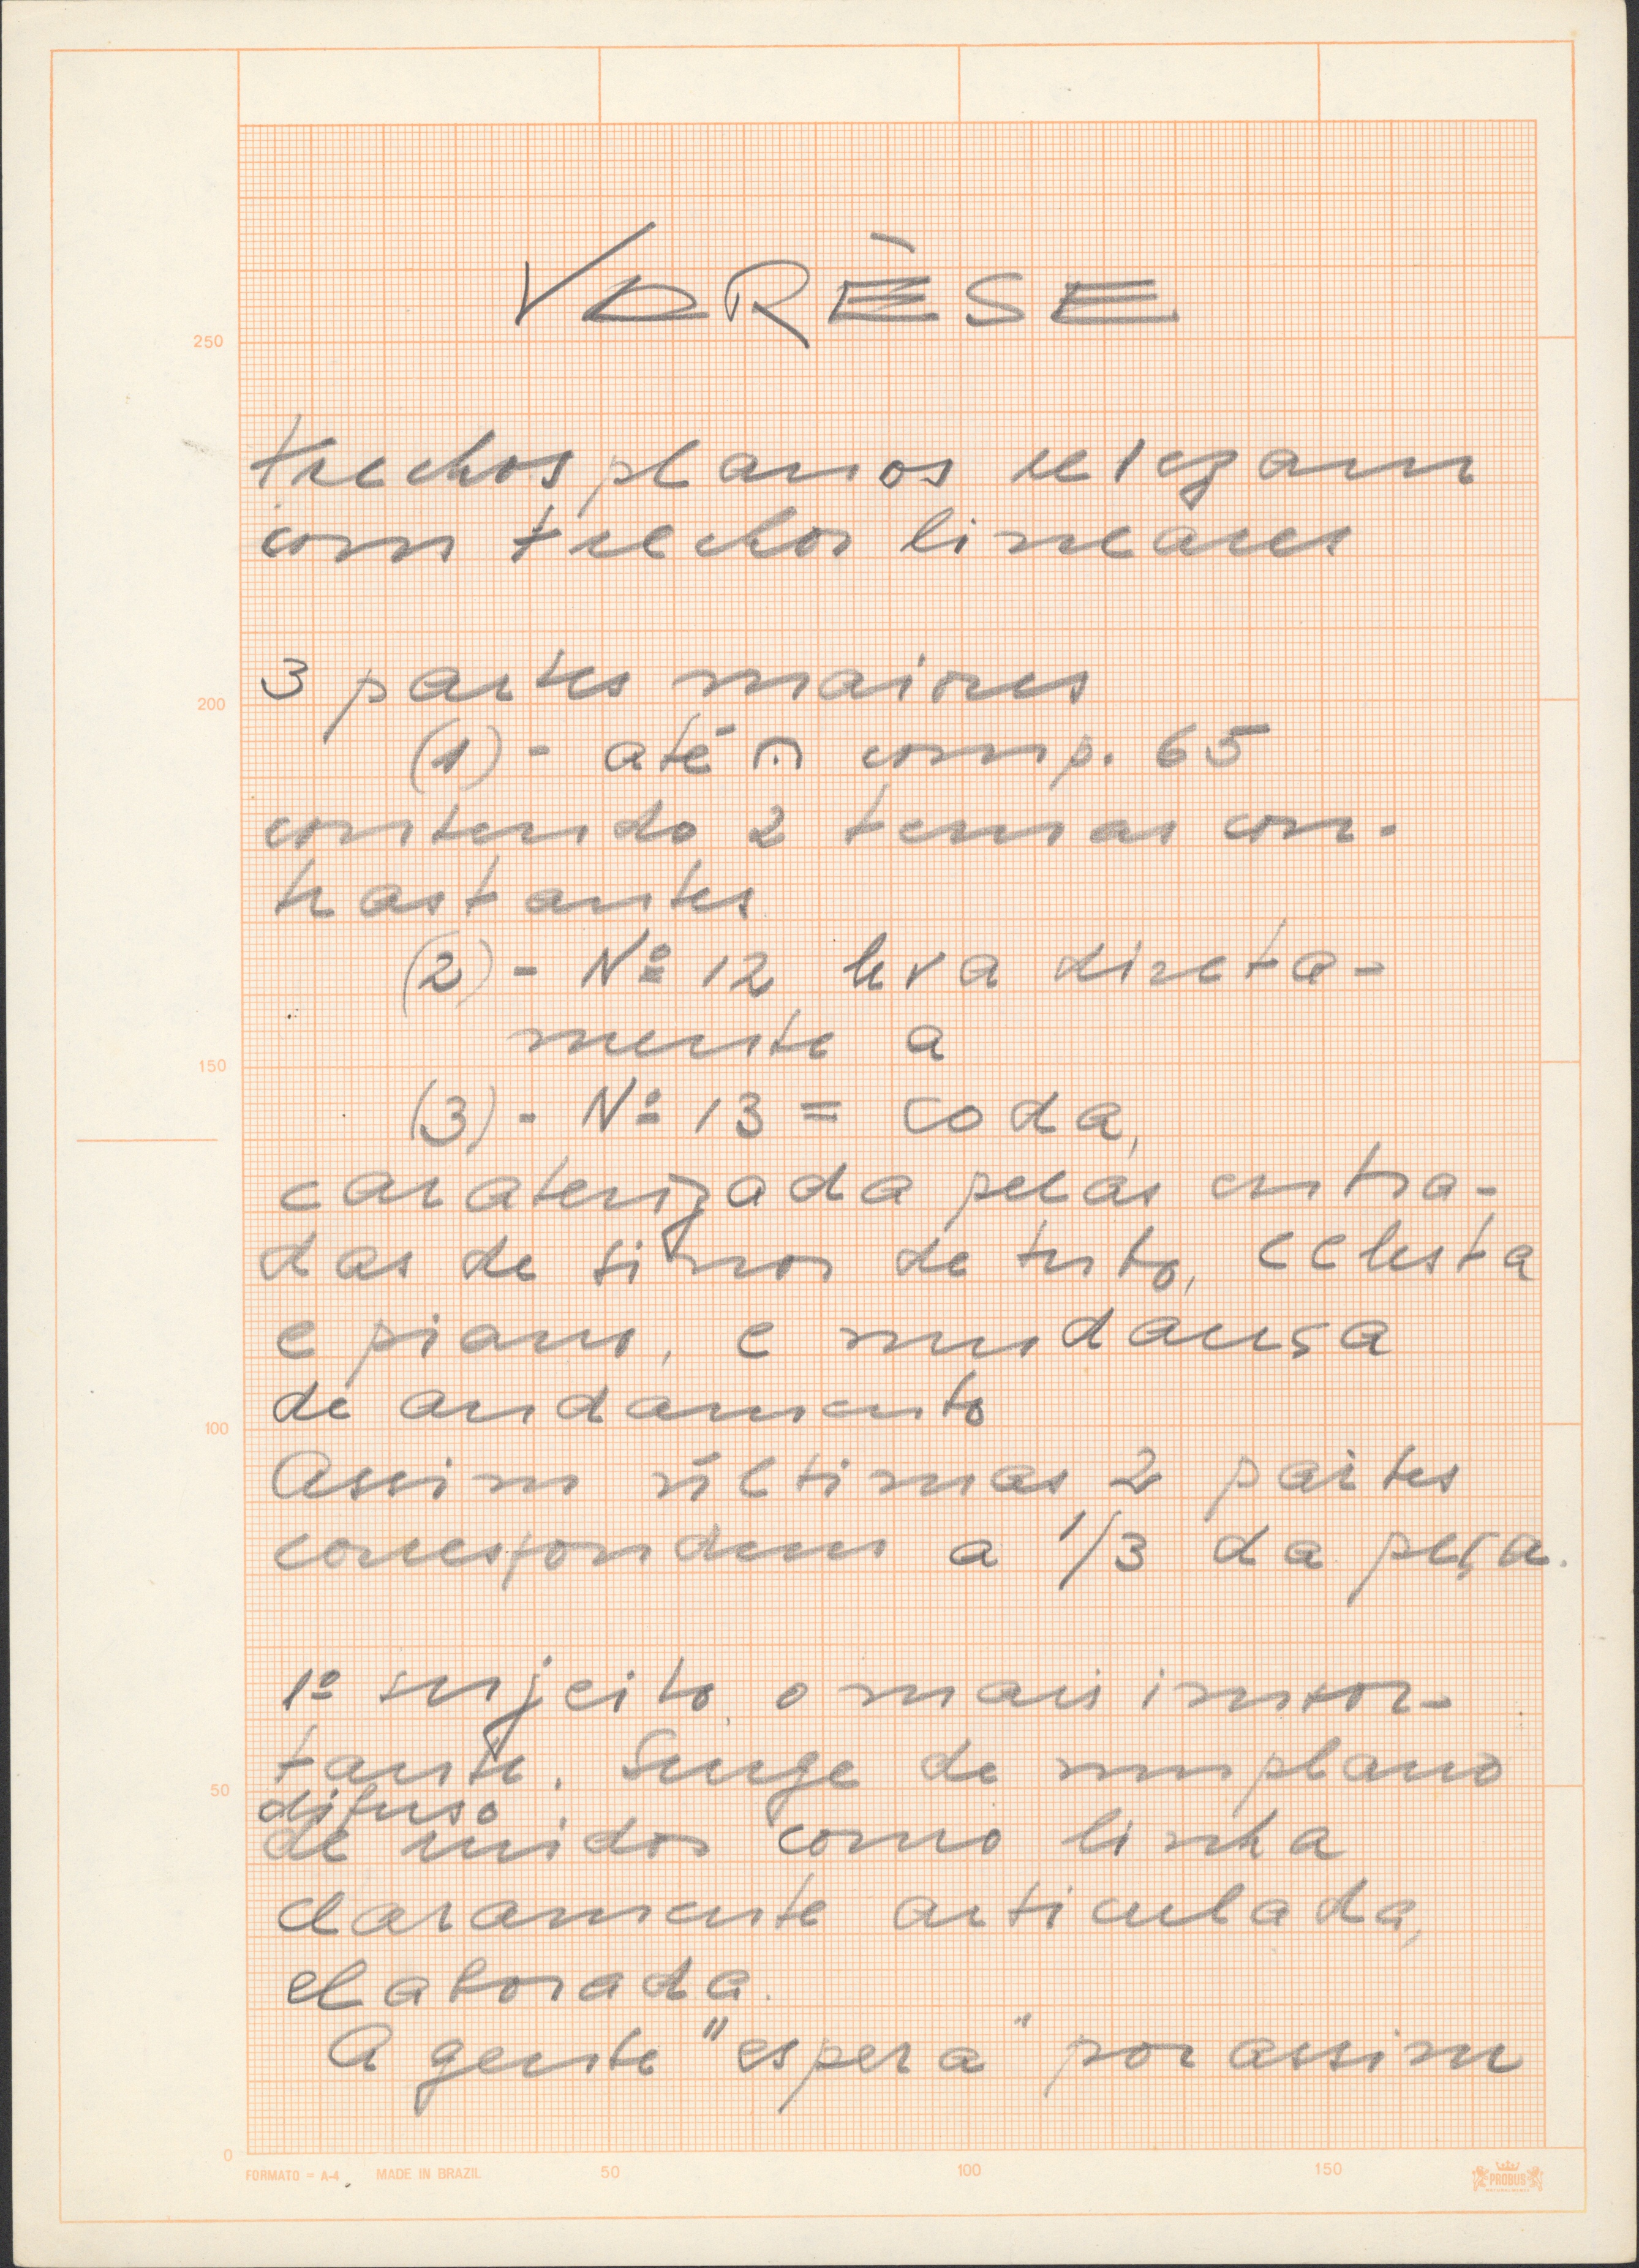 VARÈSE
250
trechos planos revezam
com trechos lineares
3 partes maiores
200
(1) - até 𝄐 comp. 65
contendo 2 temas con-
trastantes
(2) - Nº 12 leva direta-
mente a
150
(3) - Nº 13 = coda,
caraterizada pelas entra-
das de sinos de tubo, celesta
e piano, e mudança
de andamento
100
Assim últimas 2 partes
correspondem a 1/3 da peça.
1º sujeito o mais impor-
tante. Surge de um plano
50
difuso
de ruidos como linha
claramente articulada,
elaborada.
A gente "espera" por assim
0
FORMATO = A-4 MADE IN BRAZIL 50 100 150 PROBUS